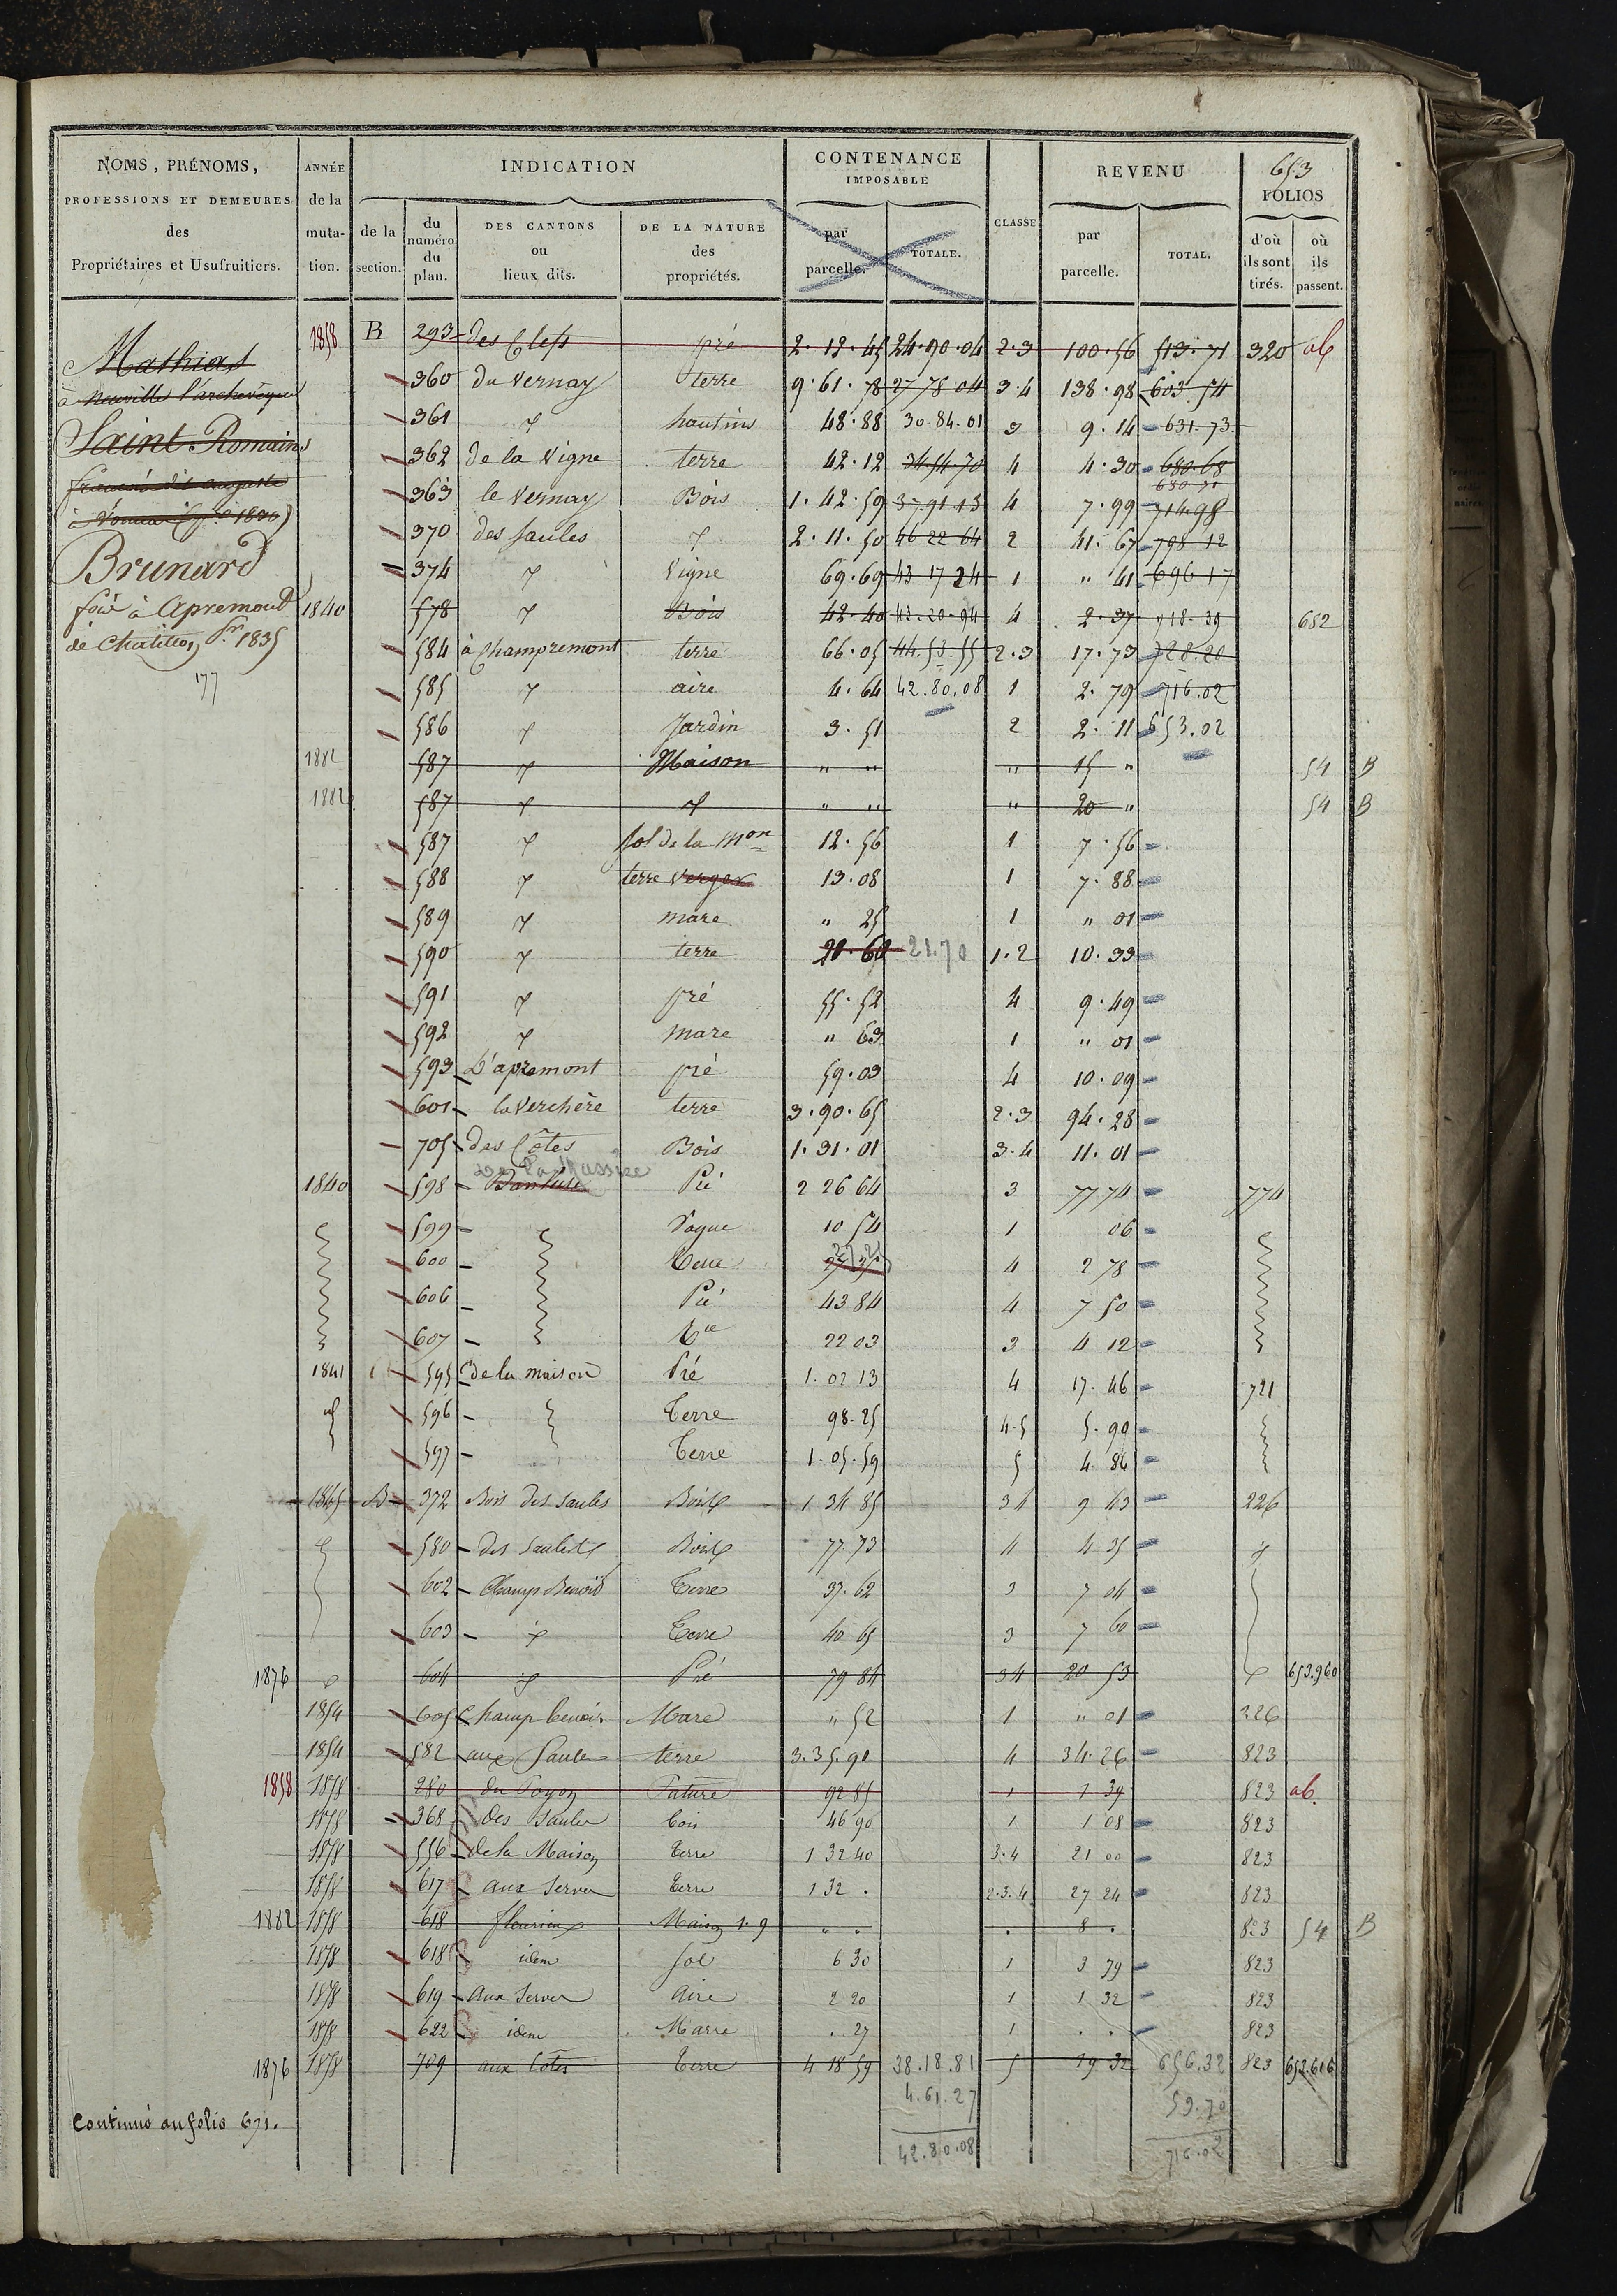 653
NOMS, PRÉNOMS, PROFESSIONS ET DEMEURES des Propriétaires et Usufruitiers.
ANNÉE de la mutation.
INDICATION
de la section.
du numéro du plan.
DES CANTONS ou lieux dits.
DE LA NATURE des propriétés.
CONTENANCE IMPOSABLE
par parcelle.
TOTALE.
CLASSE
REVENU
par parcelle.
TOTAL.
FOLIOS
d'où ils sont tirés.
où ils passent.
Mathias
à neuville l'archevêque
Saint Romain
à
Brunard
à Apremont
de Chatillon Sr 1835
177
1858 B 293 des Clefs pré 2.12.45 24.90.04 2.3 100.56 513.71 320 ab
360 du Vernay terre 9.61.78 27 78 04 3.4 138.98 603 54
361 〃 hautins 48.88 30.84.01 3 9.14 631.73
362 de la Vigne terre 42.12 34.54.70 4 4.30 680.68
363 le Vernay Bois 1.42.59 37.91.13 4 7.99 714.98
370 des Saules 〃 2.11.50 46 22 64 2 41.67 798 12
374 〃 Vigne 69.69 43 17 24 1 " 41 696 17
1840 578 〃 Bois 42.40 43.20.94 4 2.37 718.39 652
584 à Champremont terre 66.05 44.53.55 2.3 17.73 728.20
585 〃 aire 4.64 42.80.08 1 2.79 716.02
586 〃 Jardin 3.51 2 2.11 653.02
1882 587 〃 Maison " " " 15 " 54 B
1882 587 〃 〃 " " " 20 " 54 B
587 〃 sol de la Mon 12.56 1 7.56
588 〃 terre verger 13.08 1 7.88
589 〃 mare " 25 1 " 01
590 〃 terre 21.70 1.2 10.33
591 〃 pré 55.52 4 9.49
592 〃 mare " 63 1 " 01
593 D'apremont pré 59.03 4 10.09
601 la Verchère terre 3.90.65 2.3 94.28
705 des Côtes Bois 1.31.01 3.4 11.01
1840 598 Pré 2 26 64 3 77 74 774
599 Vague 10 54 1 06
600 Terre 4 2 78
606 Pré 43 84 4 7 50
607 Tre 22 03 3 4 12
1841 595 de la maison Pré 1.02 13 4 17.46 721
596 Terre 98.25 4.5 5.90
597 Terre 1.05.59 5 4.84
1845 B 372 Bois des Saules Bois 1 34 85 3 4 9 43 226
580 des Saules Bois 77.73 4 4 35
602 Champ Benoit Terre 37.62 3 7 04
603 〃 Terre 40 65 3 7 60
1876 〃 604 〃 Pré 79 84 3 4 20 53 〃 653.960
1854 605 Champ benois Mare " 52 1 " 01 326
1854 582 aux Saules terre 3.35.90 4 34.26 823
1858 1858 280 Pature 92 85 1 1 39 823 ab.
1858 368 des Saules bois 46 90 1 1 08 823
1858 556 de la Maison Terre 1 32 40 3.4 21 00 823
1858 617 aux Serves Terre 1 32 . 2.3.4 27 24 823
1882 1858 618 fleurieux Maison 1.9 . . . 8 . 823 54 B
1858 618 idem sol 6 30 1 3 79 823
1858 619 aux Serves Aire 2 20 1 1 32 823
1858 622 idem Marre . 27 1 . . 823
1876 1858 709 aux Côtes Terre 4 18 59 38.18.81 5 19 32 656.32 823 653.616
4.61.27 59.70
42.80.08 716.02
Continué au folio 671.